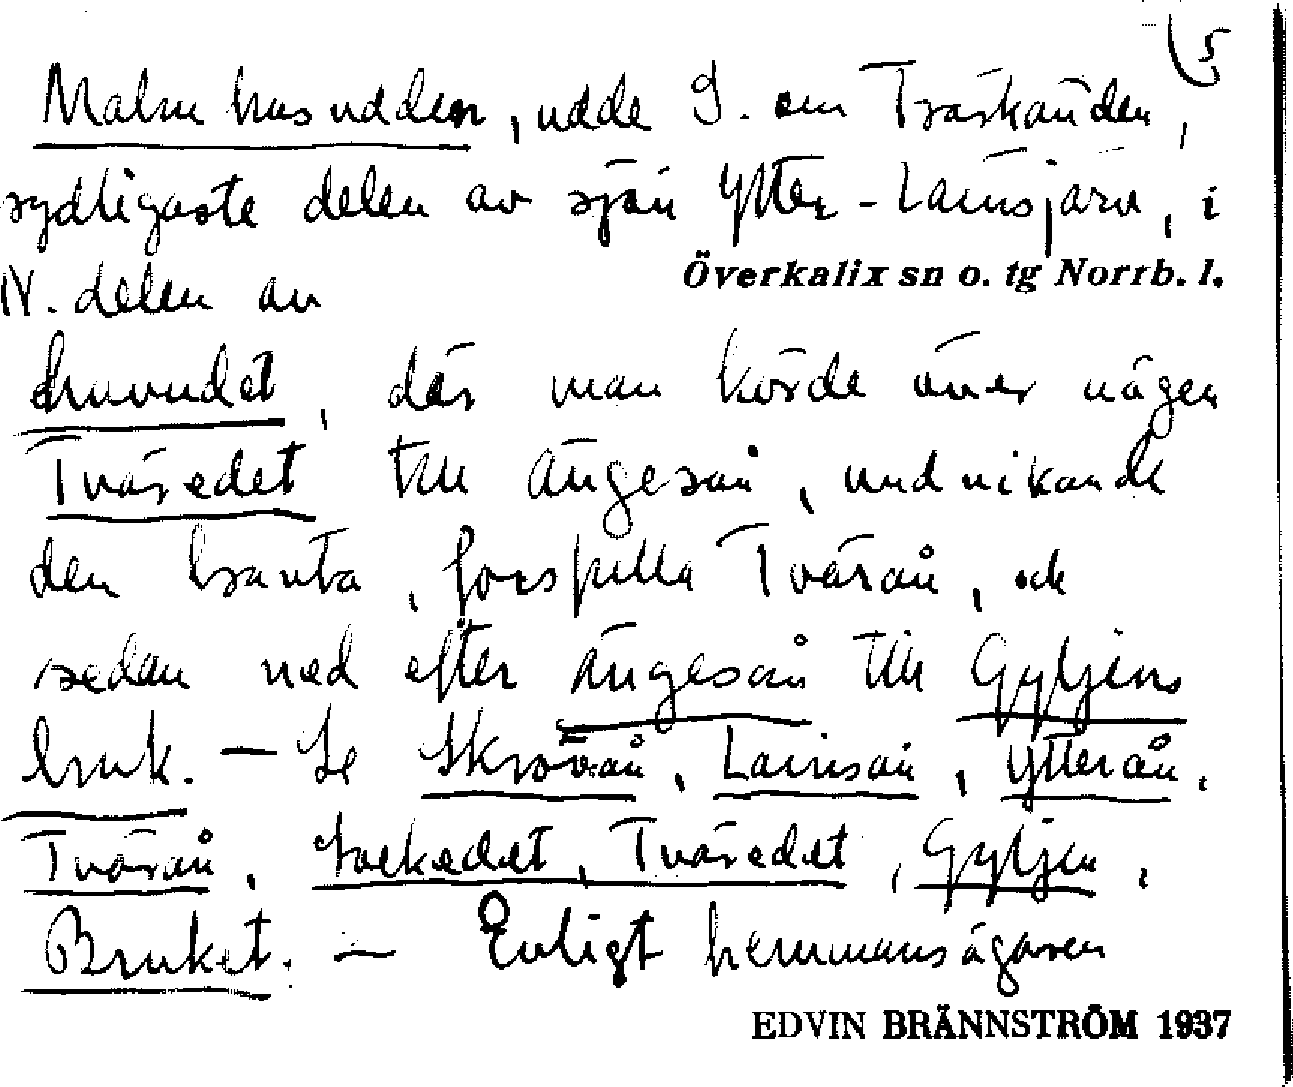 (5
Malmhusudden, udde S. om Träskänden,
sydligaste delen av sjön Ytter-Lainsjärv, i
N. delen av Överkalix sn o. tg Norrb. l.
huvudet, där man körde över någon
Tväredet till Ängesån, undvikande
den branta, forsfyllda Tvärån, och
sedan ned efter Ängesån till Gyljens
bruk. — Se Skrövån, Lainsån, Ytterån,
Tvärån, Sockedet, Tväredet, Gyljen,
Bruket. — Enligt hemmansägaren
EDVIN BRÄNNSTRÖM 1937